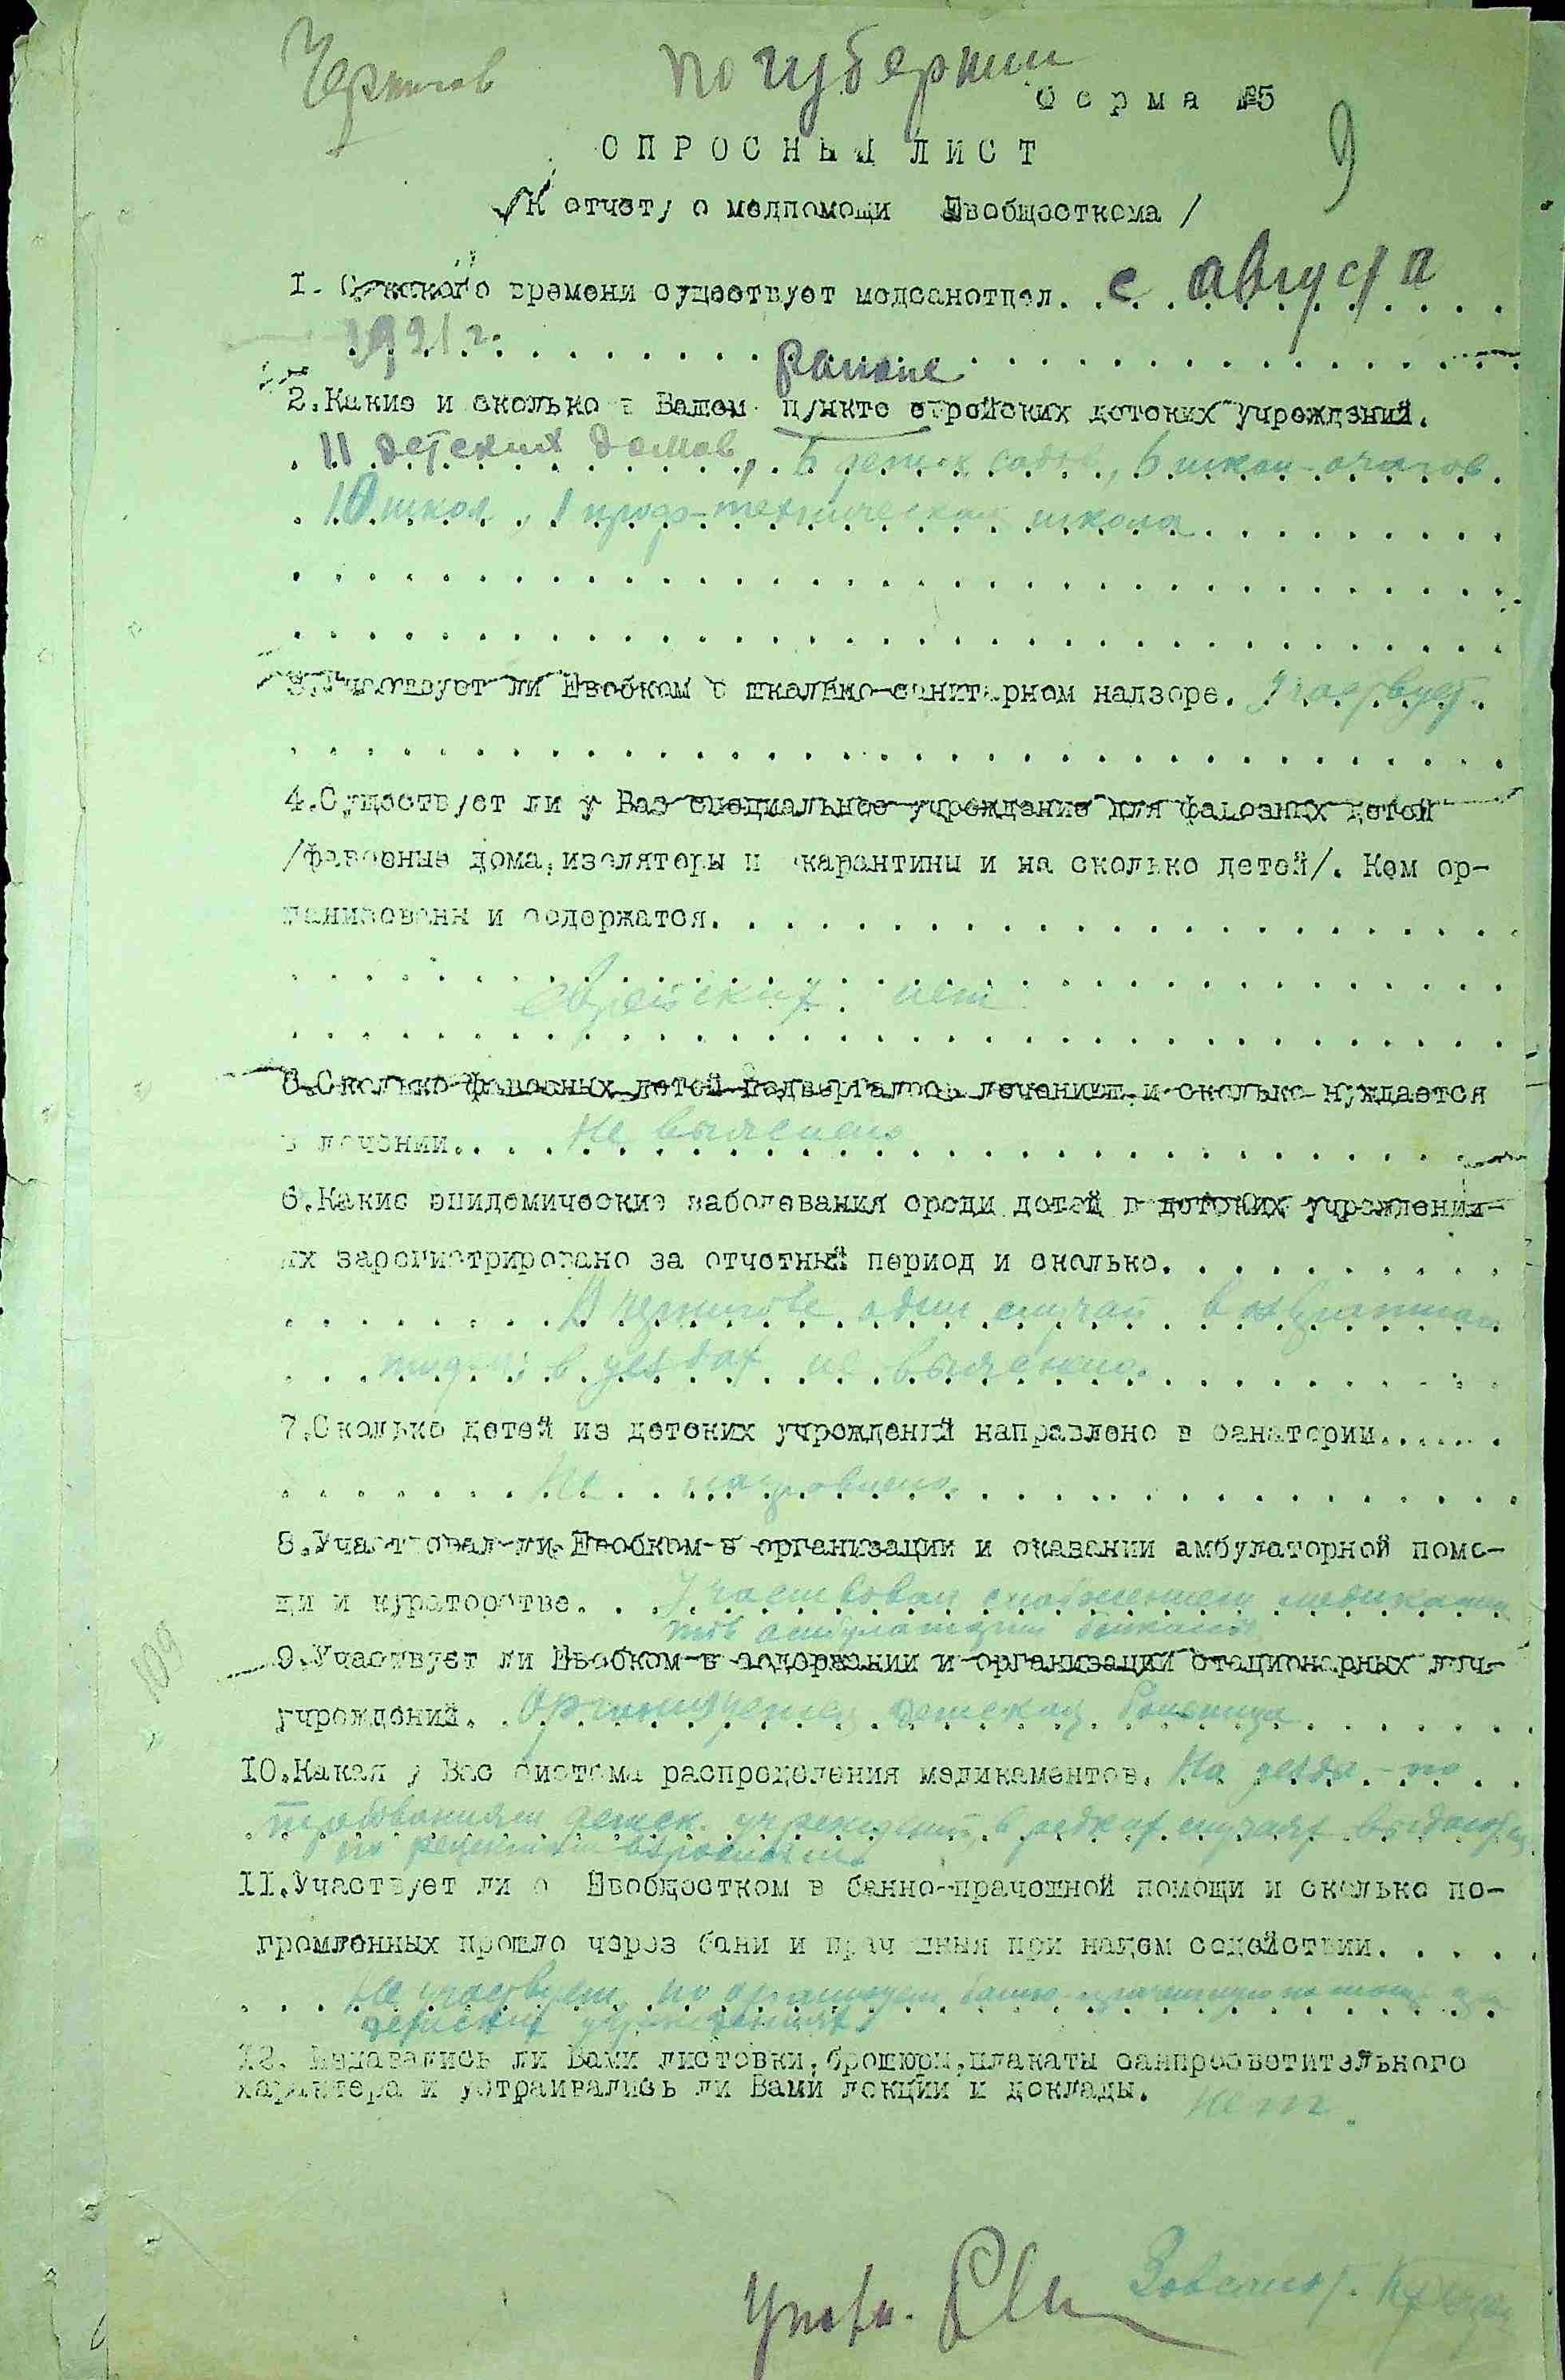 Чернигов по губернии
Форма №5
9
ОПРОСНЫЙ ЛИСТ
/К отчету о медпомощи Евобщесткома/
1. С какого времени существует медсанотдел. с августа
1921 г.
районе
2.Какие и сколько в Вашем пункте еврейских детских учреждений.
11 детских домов, 5 детск садов, 6 школ-очагов
10 школ, 1 проф-техническая школа
3.Участвует ли Евобком в школьно-санитарном надзоре. Участвует
4.Существует ли у Вас специальное учреждение для фавозных детей
/фавозные дома, изоляторы и карантины и на сколько детей/. Кем ор-
ганизованы и содержатся.
еврейских нет
5.Сколько фавозных детей подвергалось лечению и сколько нуждается
в лечении. Не выяснено
6.Какие эпидемические заболевания среди детей в детских учреждени-
ях зарегистрировано за отчетный период и сколько.
В Чернигове один случай возвратного
тифа; в уездах не выяснено.
7.Сколько детей из детских учреждений направлено в санатории.
Не направлено.
8.Участвовал ли Евобком в организации и оказании амбулаторной помо-
щи и кураторстве. Участвовал снабжением медикамен
тов амбулатории
9.Участвует ли Евобком в содержании и организации стационарных леч-
учреждений. Организуется детская больница
10.Какая у Вас система распределения медикаментов. На уезда - по
требованиям детск. учреждений, в редких случаях выдаются
по рецептам взрослым.
11.Участвует ли о Евобщестком в банно-прачешной помощи и сколько по-
громленных прошло через бани и прачешныя при нашем содействии.
Не участвует, но организует банно-прачешную помощь
детских учреждениях
12. Издавались ли Вами листовки, брошюры, плакаты санпросветительного
характера и устраивались ли Вами лекции и доклады. нет.
109
Завмедсанот.